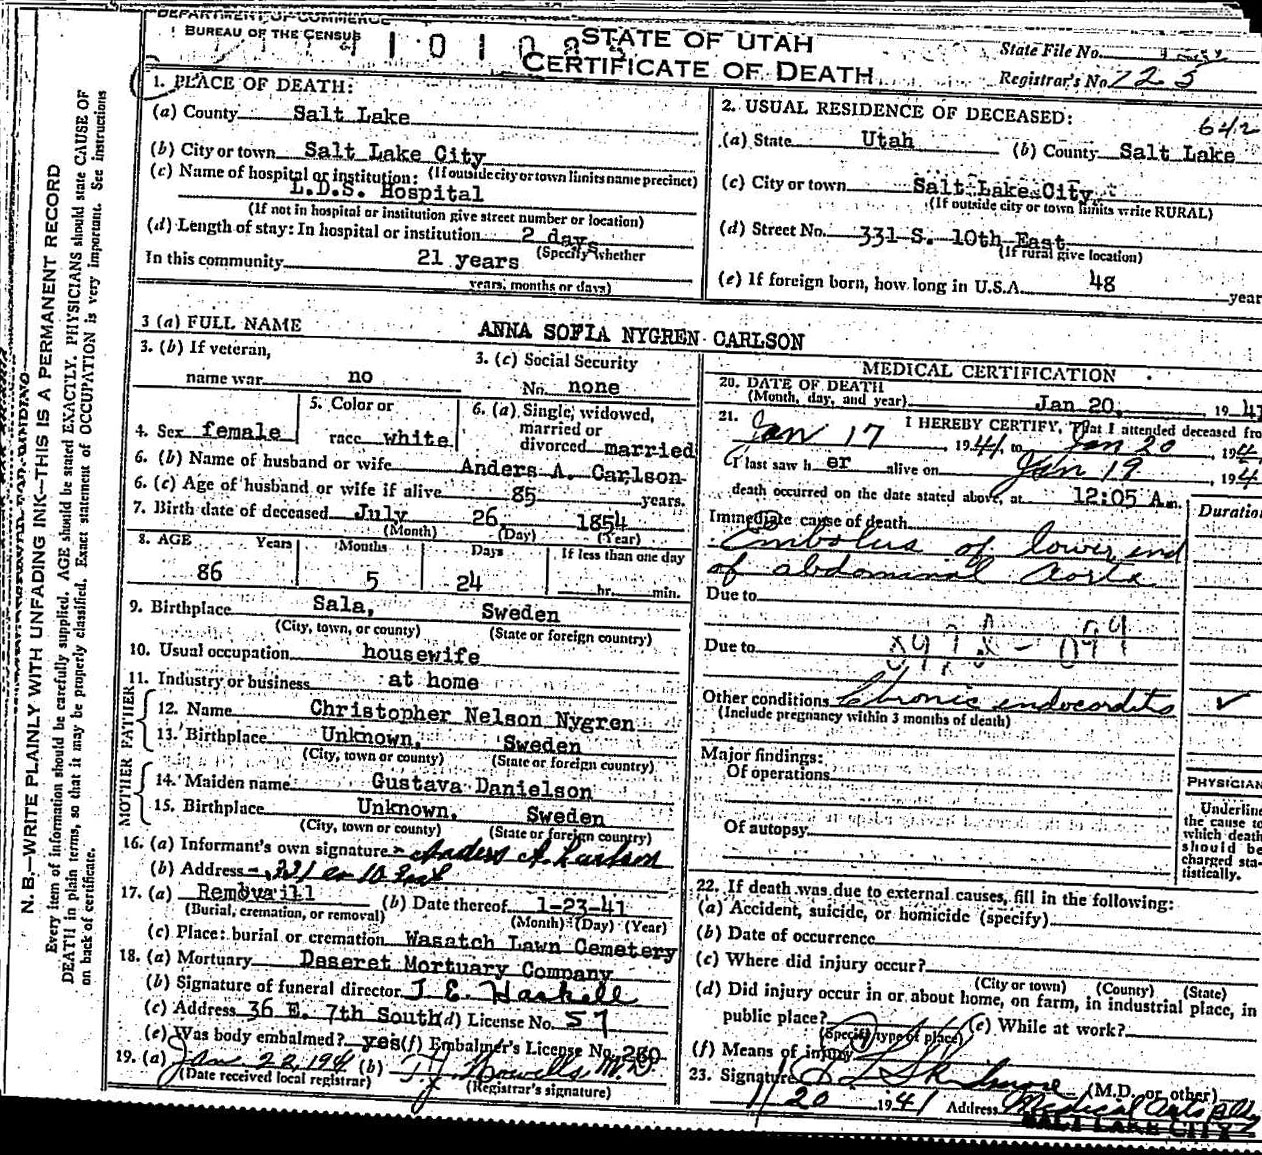 DEPARTMENT OF COMMERCE
BUREAU OF THE CENSUS
STATE OF UTAH
CERTIFICATE OF DEATH
State File No.
Registrar's No. 125
1. PLACE OF DEATH:
(a) County Salt Lake
(b) City or town Salt Lake City
(c) Name of hospital or institution: (If outside city or town limits name precinct)
L.D.S. Hospital
(If not in hospital or institution give street number or location)
(d) Length of stay: In hospital or institution 2 days
(Specify whether
In this community 21 years
years, months or days)
2. USUAL RESIDENCE OF DECEASED:
642
(a) State Utah (b) County Salt Lake
(c) City or town Salt Lake City
(If outside city or town limits write RURAL)
(d) Street No. 331 S. 10th East
(If rural give location)
(e) If foreign born, how long in U.S.A. 48 year
3 (a) FULL NAME ANNA SOFIA NYGREN CARLSON
3. (b) If veteran,
name war no
3. (c) Social Security
No. none
4. Sex female
5. Color or
race white
6. (a) Single, widowed,
married or
divorced married
6. (b) Name of husband or wife Anders A. Carlson
6. (c) Age of husband or wife if alive 85 years.
7. Birth date of deceased July 26, 1854
(Month) (Day) (Year)
8. AGE Years Months Days If less than one day
86 5 24 hr. min.
9. Birthplace Sala, Sweden
(City, town, or county) (State or foreign country)
10. Usual occupation housewife
11. Industry or business at home
FATHER
12. Name Christopher Nelson Nygren
13. Birthplace Unknown, Sweden
(City, town or county) (State or foreign country)
MOTHER
14. Maiden name Gustava Danielson
15. Birthplace Unknown, Sweden
(City, town or county) (State or foreign country)
16. (a) Informant's own signature Anders A Carlson
(b) Address 331 so 10 East
17. (a) Removal (b) Date thereof 1-23-41
(Burial, cremation, or removal) (Month) (Day) (Year)
(c) Place: burial or cremation Wasatch Lawn Cemetery
18. (a) Mortuary Deseret Mortuary Company
(b) Signature of funeral director J. E. Haskell
(c) Address 36 E. 7th South (d) License No. 57
(e) Was body embalmed? yes (f) Embalmer's License No. 260
19. (a) Jan 22, 1941 (b) T.J. Howells M.D.
(Date received local registrar) (Registrar's signature)
MEDICAL CERTIFICATION
20. DATE OF DEATH
(Month, day, and year) Jan 20, 1941
21. I HEREBY CERTIFY, That I attended deceased fro
Jan 17, 1941, to Jan 20, 194
I last saw her alive on Jan 19, 194
death occurred on the date stated above, at 12:05 A.m.
Duration
Immediate cause of death
Embolus of lower end
of abdominal Aorta
Due to
Due to
Other conditions Chronic endocarditis
(Include pregnancy within 3 months of death)
Major findings:
Of operations
Of autopsy
PHYSICIAN
Underline
the cause to
which death
should be
charged sta-
tistically.
22. If death was due to external causes, fill in the following:
(a) Accident, suicide, or homicide (specify)
(b) Date of occurrence
(c) Where did injury occur?
(City or town) (County) (State)
(d) Did injury occur in or about home, on farm, in industrial place, in
public place?
(Specify type of place) (e) While at work?
(f) Means of injury
23. Signature Skidmore (M.D. or other)
1/20 1941 Address Medical Arts Bldg
SALT LAKE CITY
N. B.—WRITE PLAINLY WITH UNFADING INK—THIS IS A PERMANENT RECORD
Every item of information should be carefully supplied. AGE should be stated EXACTLY. PHYSICIANS should state CAUSE OF
DEATH in plain terms, so that it may be properly classified. Exact statement of OCCUPATION is very important. See instructions
on back of certificate.